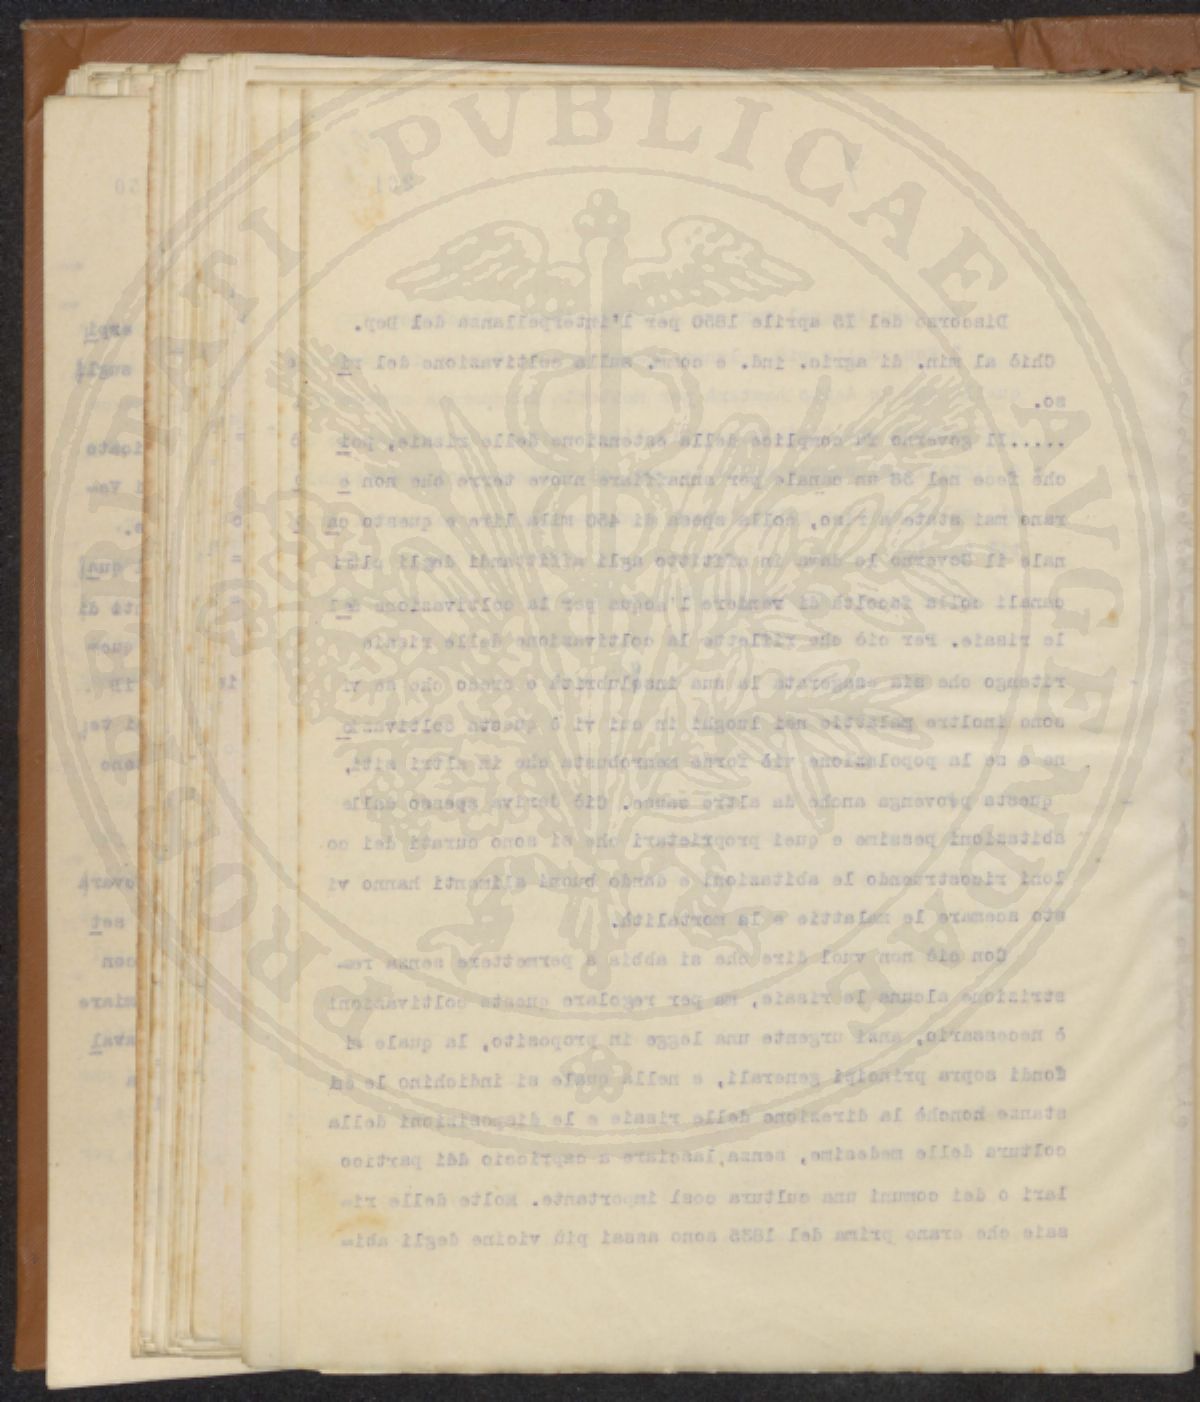 201
Discorso del I5 aprile 1850 per l'interpellanza del Dep.
Chiò al min. di agric. ind. e comm. sulla coltivazione del ri
so.
.....Il governo fu complice della estensione delle risaie, poi
chè fece nel 38 un canale per annaffiare nuove terre che non e
rano mai state a riso, colla spesa di 450 mila lire e questo ca
nale il Governo lo dava in affittto agli affittandi degli altri
canali colla facoltà di vendere l'acqua per la coltivazione del
le risaie. Per ciò che riflette la coltivazione delle risaie
ritengo che sia esagerata la sua insalubrità e credo che se vi
sono inoltre malattie nei luoghi in cui vi è questa coltivazio
ne e se la popolazione viè forse menrobusta che in altri siti,
questa provenga anche da altre cause. Ciò deriva spesso dalle
abitazioni pessime e quei proprietari che si sono curati dei co
loni ricostruendo le abitazioni e dando buoni alimenti hanno vi
sto scemare le malattie e la mortalità.
Con ciò non vuol dire che si abbia a permettere senza re-
strizione alcuna le risaie, ma per regolare questa coltivazioni
è necessario, anzi urgente una legge in proposito, la quale si
fondi sopra principi generali, e nella quale si indichino le di
stanze nonchè la direzione delle risaie e le disposizioni della
coltura delle medesime, senza lasciare a capriccio dei partico
lari o dei comuni una cultura così importante. Molte delle ri-
saie che erano prima del 1835 sono assai più vicine degli abi-
PROBITATI PVBLICAE AVGENDAE